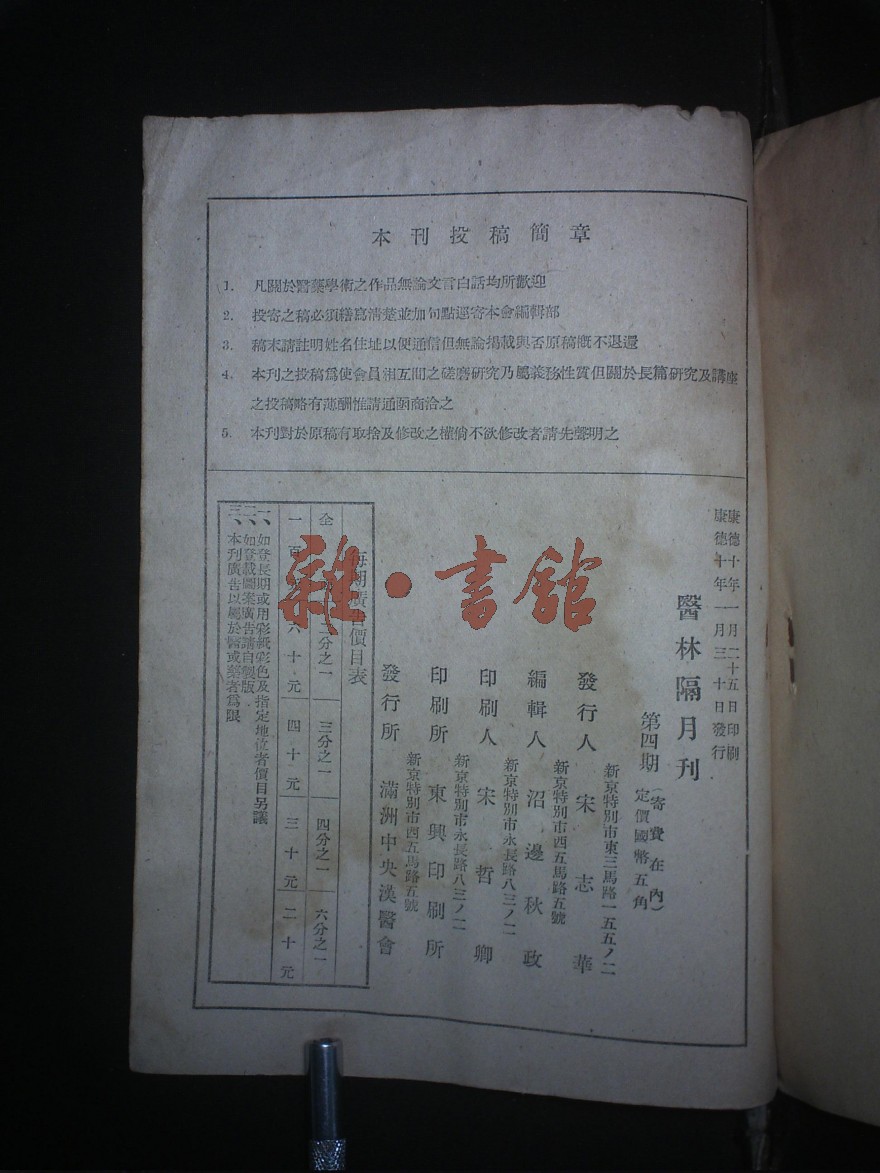 本刊投稿簡章
1. 凡關於醫藥學術之作品無論文言白話均所歡迎
2. 投寄之稿必須繕寫清楚並加句點逕寄本會編輯部
3. 稿末請註明姓名住址以便通信但無論揭載與否原稿概不退還
4. 本刊之投稿爲使會員相互間之磋磨研究乃屬義務性質但關於長篇研究及講座
之投稿略有薄酬惟請通函商洽之
5. 本刊對於原稿有取捨及修改之權倘不欲修改者請先聲明之
康德十年一月二十五日印刷
康德十年一月三十日發行
醫林隔月刊
第四期
(寄費在內)
定價國幣五角
新京特別市東三馬路一五五ノ二
發行人 宋志華
新京特別市西五馬路五號
編輯人 沼邊秋政
新京特別市永長路八三ノ二
印刷人 宋哲卿
新京特別市永長路八三ノ二
印刷所 東興印刷所
新京特別市西五馬路五號
發行所 滿洲中央漢醫會
每期廣告價目表
全 二分之一 三分之一 四分之一 六分之一
一百 六十元 四十元 三十元 二十元
一、如登長明或用彩紙彩色及指定地位者價目另議
二、如登載圖案廣告請自製版
三、本刊廣告以屬於醫或藥者爲限
雜·書館